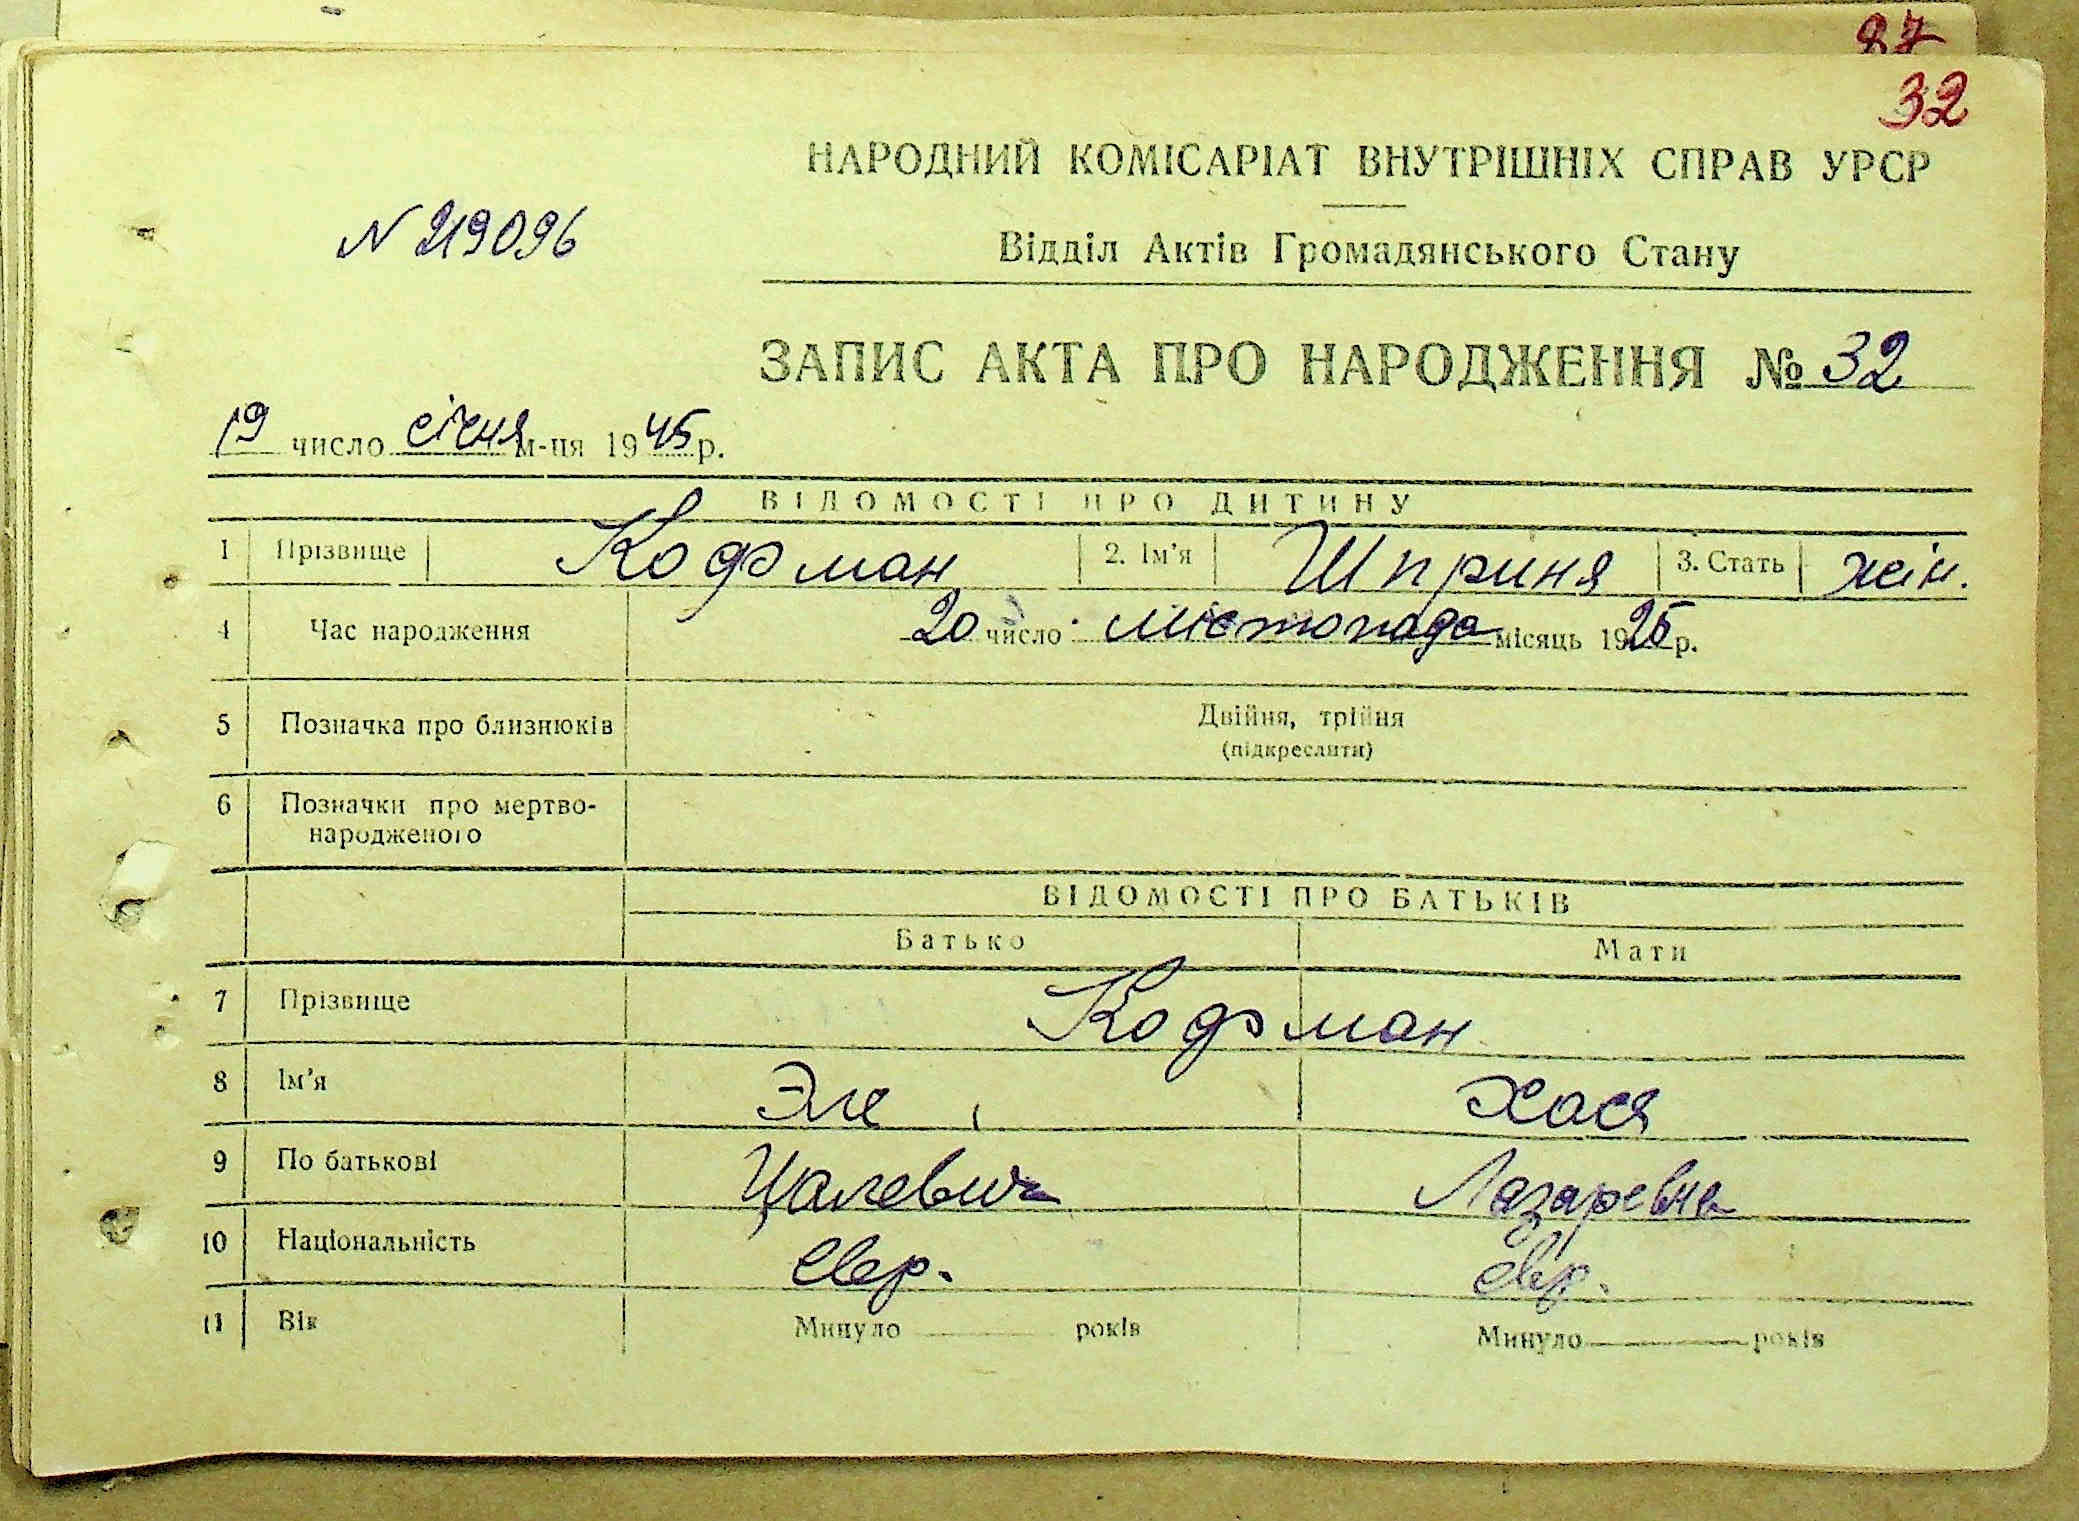 87
32
НАРОДНИЙ КОМІСАРІАТ ВНУТРІШНІХ СПРАВ УРСР
N 219096
Відділ Актів Громадянського Стану
ЗАПИС АКТА ПРО НАРОДЖЕННЯ № 32
19 число січня м-ця 1945 р.
ВІДОМОСТІ ПРО ДИТИНУ
1 Прізвище Кофман 2. Ім'я Шприня 3. Стать жін.
4 Час народження 20 число листопада місяць 1925 р.
5 Позначка про близнюків Двійня, трійня
(підкреслити)
6 Позначки про мертво-
народженого
ВІДОМОСТІ ПРО БАТЬКІВ
Батько Мати
7 Прізвище Кофман
8 Ім'я Эле Хася
9 По батькові Цалевич Лазаревна
10 Національність євр. євр.
11 Вік Минуло років Минуло років